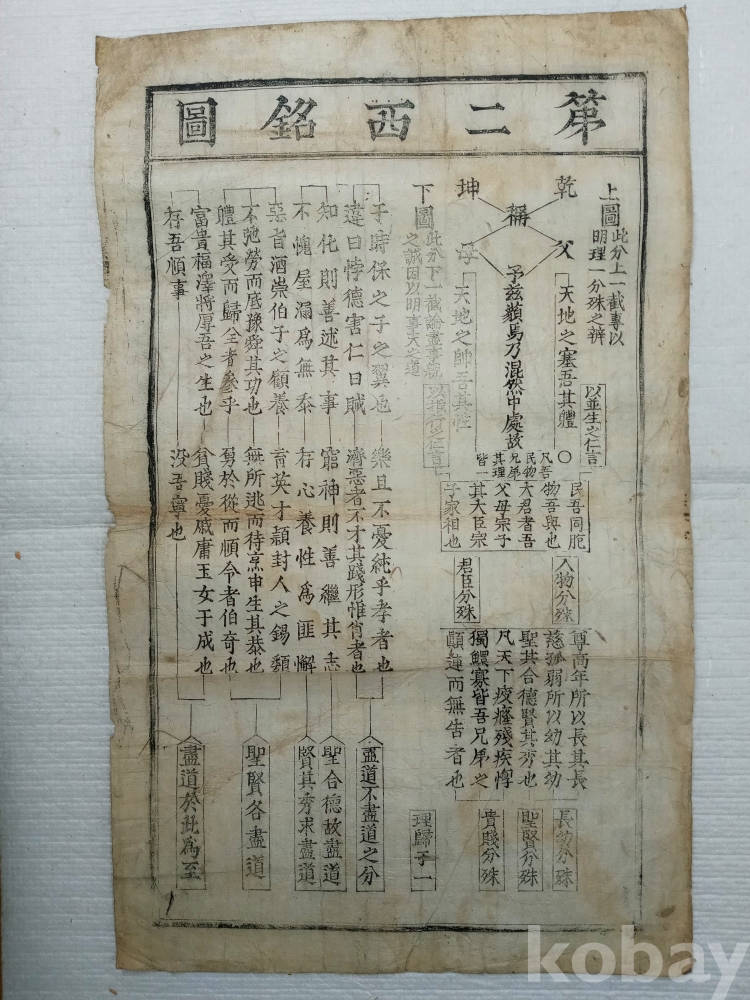 第二西銘圖
上圖
此分上一截專以
明理一分殊之辨
乾父
稱
坤母
天地之塞吾其體
予玆藐焉乃混然中處故
天地之帥吾其性
以並生之仁言
○
凡吾
民物
兄弟
其理
皆一
民吾同胞
物吾與也
大君者吾
父母宗子
其大臣宗
子家相也
人物分殊
君臣分殊
尊高年所以長其長
慈孤弱所以幼其幼
聖其合德賢其秀也
凡天下疲癃殘疾惸
獨鰥寡皆吾兄弟之
顚連而無告者也
長幼分殊
聖賢分殊
貴賤分殊
理歸于一
下圖
此分下一截論盡事親
之誠因以明事天之道
于時保之子之翼也
樂且不憂純乎孝者也
違曰悖德害仁曰賊
濟惡者不才其踐形惟肖者也
知化則善述其事
窮神則善繼其志
不愧屋漏爲無忝
存心養性爲匪懈
惡旨酒崇伯子之顧養
育英才穎封人之錫類
不弛勞而底豫舜其功也
無所逃而待烹申生其恭也
體其受而歸全者參乎
勇於從而順令者伯奇也
富貴福澤將厚吾之生也
貧賤憂戚庸玉女于成也
存吾順事
没吾寧也
盡道不盡道之分
聖合德故盡道
賢其秀求盡道
聖賢各盡道
盡道於此爲至
kobay